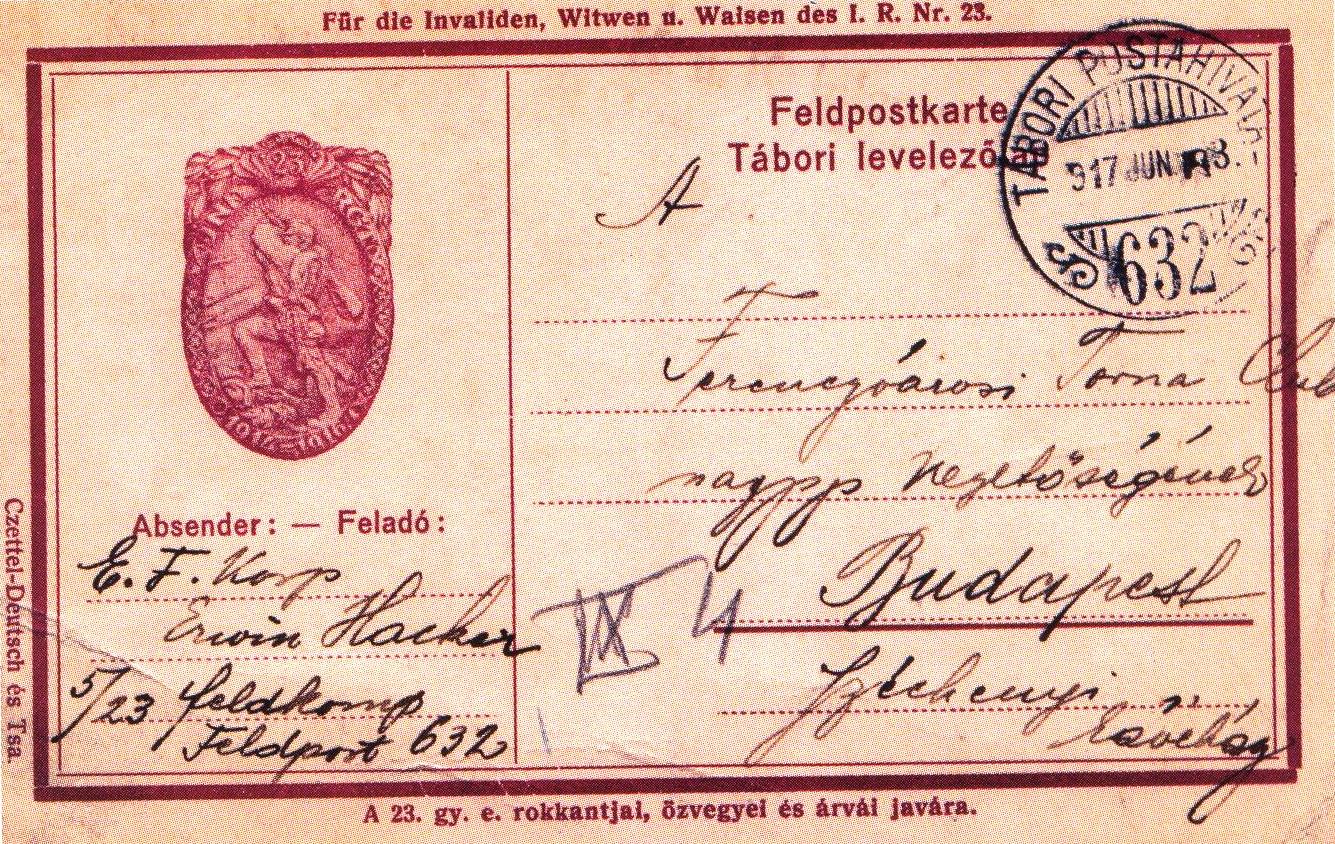 Für die Invaliden, Witwen u. Waisen des I. R. Nr. 23.
Feldpostkarte
Tábori levelezőlap
TÁBORI POSTAHIVATAL
917 JUN
632
A
Ferenczvárosi Torna Club
nagyp
Budapest
Széchenyi
kávéház
IX 4
23
INF RGT
1914-1916
Absender: — Feladó:
E. F. Korp
Erwin Hacker
5/23 feldkomp
Feldpost 632
Czettel-Deutsch és Tsa.
A 23. gy. e. rokkantjai, özvegyei és árvái javára.